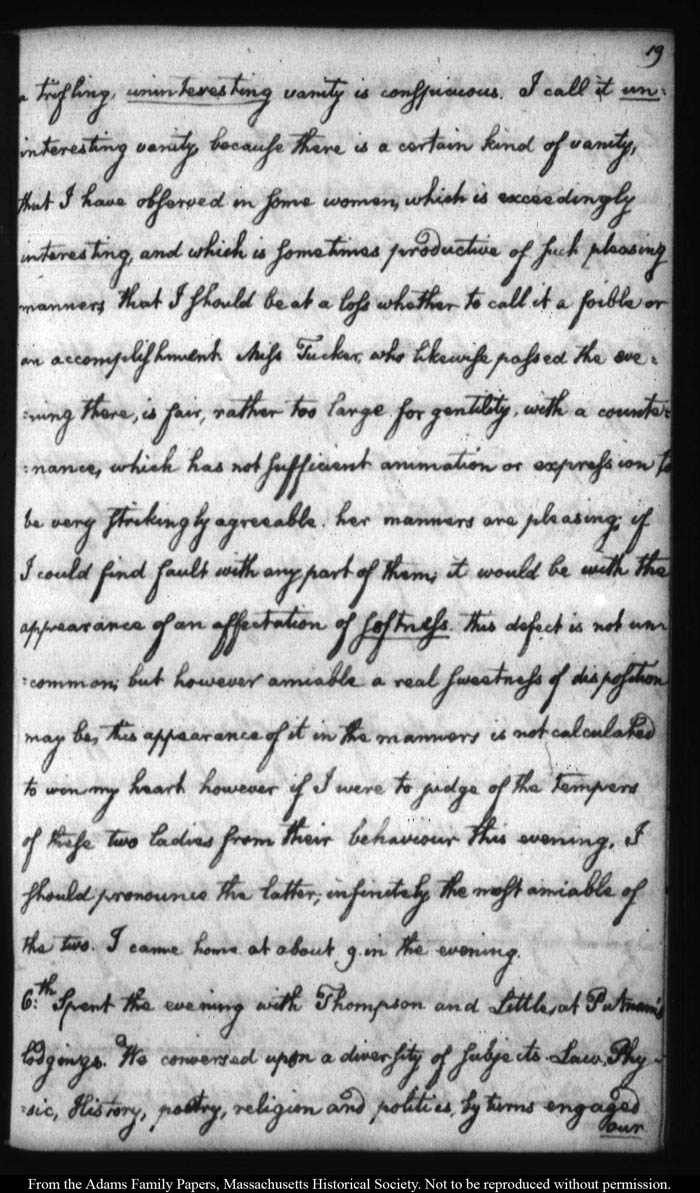 19
a trifling, uninteresting vanity is conspicuous. I call it un:
interesting vanity, because there is a certain kind of vanity,
that I have observed in some women, which is exceedingly
interesting, and which is sometimes productive of such pleasing
manners, that I should be at a loss whether to call it a foible or
an accomplishment. Miss Tucker, who likewise passed the eve:
:ning there, is fair, rather too large for gentility, with a counte:
:nance, which has not sufficient animation or expression to
be very strikingly agreeable. her manners are pleasing; if
I could find fault with any part of them, it would be with the
appearance of an affectation of softness. this defect is not un
:common; but however amiable a real sweetness of disposition
may be, this appearance of it in the manners is not calculated
to win my heart however if I were to judge of the tempers
of these two ladies from their behaviour this evening, I
should pronounce the latter, infinitely, the most amiable of
the two. I came home at about 9. in the evening.
6:th Spent the evening with Thompson and Little, at Putnam's
lodgings. We conversed upon a diversity of subjects. Law, Phy-
:sic, History, poetry, religion and politics, by turns engaged
our
From the Adams Family Papers, Massachusetts Historical Society. Not to be reproduced without permission.